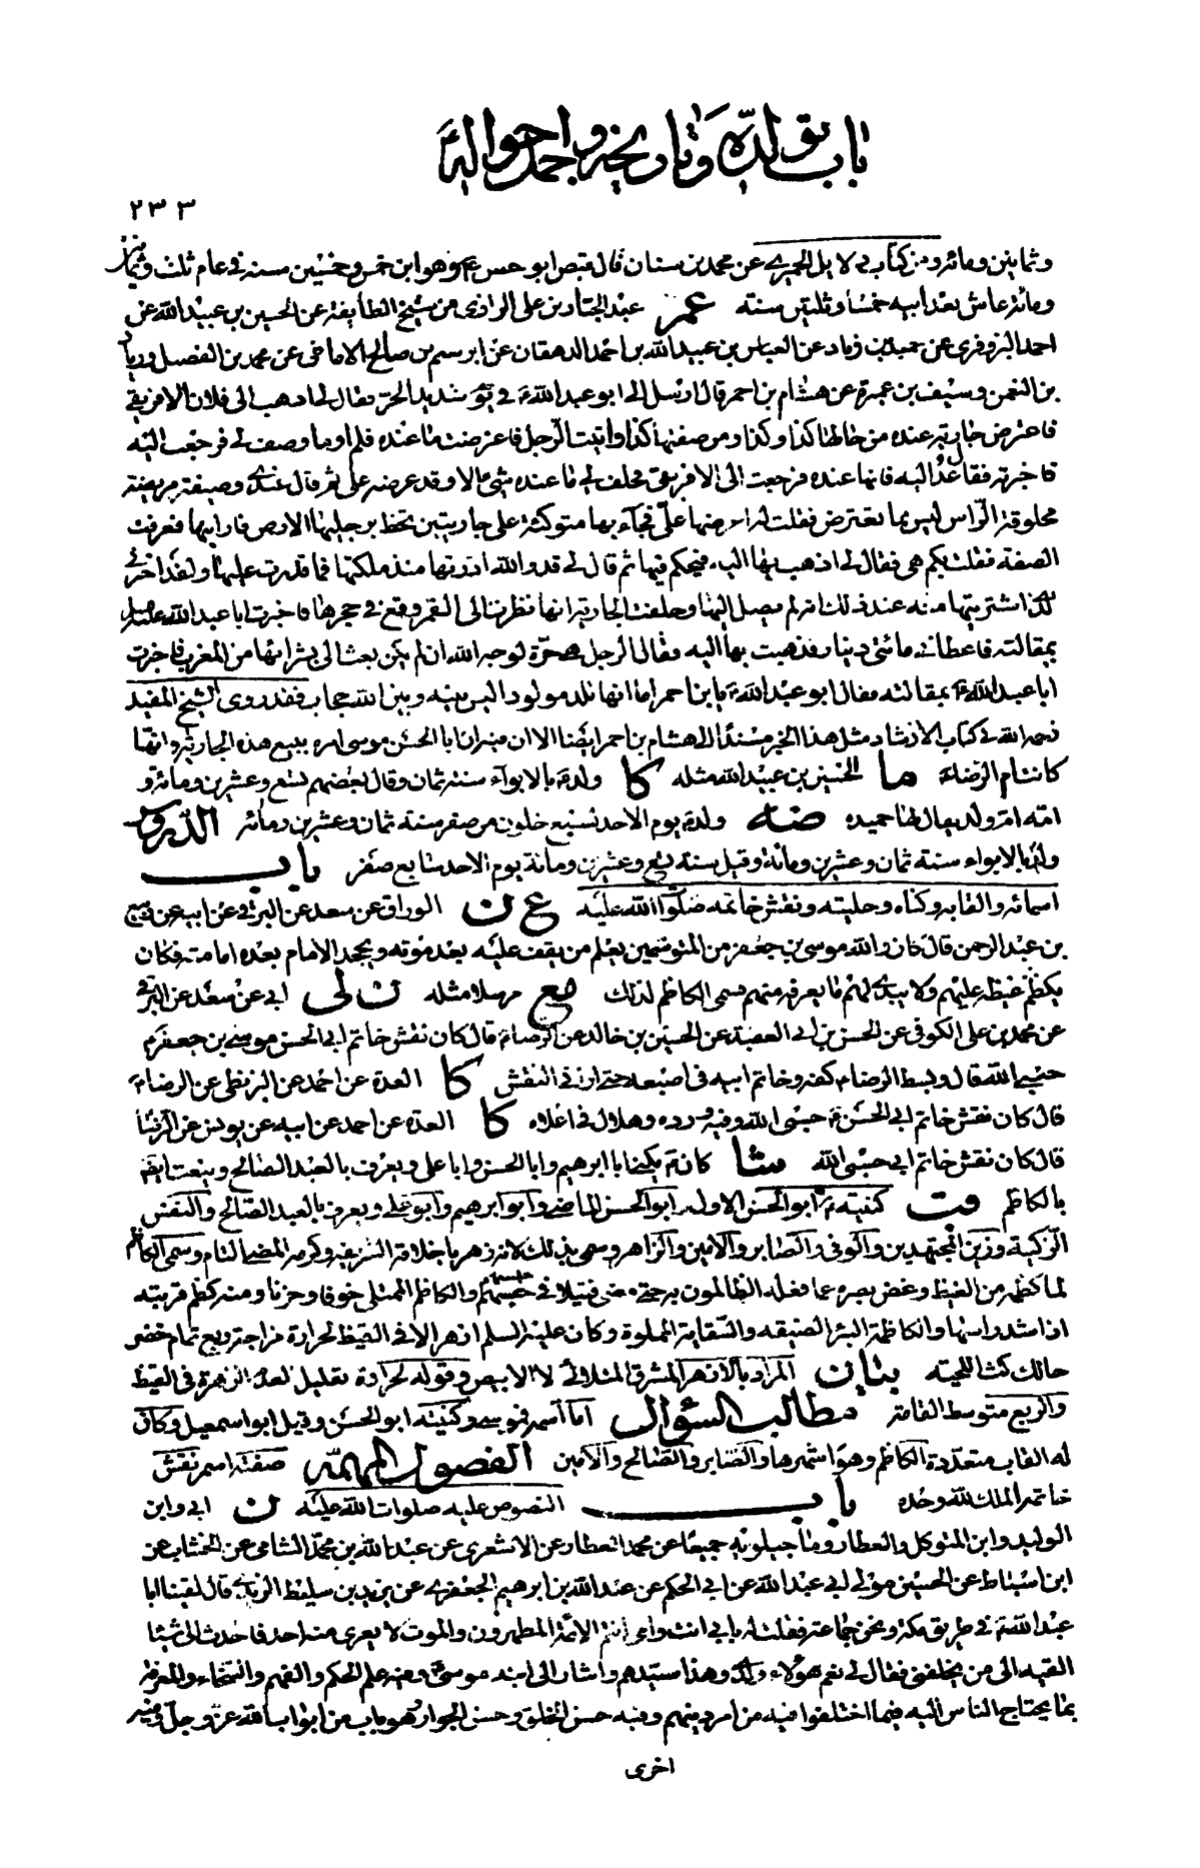 باب تولّده وتاريخه وجمل احواله
٢٣٣
وثمانين ومائه ومن كتاب دلايل الحميري عن محمد بن سنان قال قبض ابو الحسن ع وهو ابن خمس وخمسين سنه في عام ثلث وثمانين
ومائة عاش بعد ابيه خمسا وثلثين سنه عمر عبد الجبار بن علي الرازي عن شيخ الطايفة عن الحسين بن عبيد الله عن
احمد البزوفري عن حميد بن زياد عن العباس بن عبيد الله بن احمد الدهقان عن ابرهيم بن صالح الانماطي عن محمد بن الفضل وزياد
بن النعمن وسيف بن عميرة عن هشام بن احمر قال ارسل الى ابو عبد الله ع في يوم شديد الحر فقال لي اذهب الى فلان الافريقي
فاعترض جارية عنده من حالها كذا وكذا ومن صفتها كذا واتيت الرجل فاعترضت ما عنده فلم ار ما وصف لي فرجعت اليه
فاخبرته فقال عد اليه فانها عنده فرجعت الى الافريقي فحلف لي ما عنده شيء الا وقد عرضه علي ثم قال عندي وصيفة مريضة
محلوقة الرأس ليس مما تعترض فقلت له اعرضها علي فجاء بها متوكئة على جاريتين تخط برجليها الارض فارانيها فعرفت
الصفة فقلت بكم هي فقال لي اذهب بها اليه فيحكم فيها ثم قال لي قد والله اردتها منذ ملكتها فما قدرت عليها ولقد اخبرني
الذي اشتريتها منه عند ذلك انه لم يصل اليها وحلفت الجارية انها نظرت الى القمر وقع في حجرها فاخبرت ابا عبد الله عليه السلم
بمقالته فاعطاني مائتي دينار فذهبت بها اليه فقال الرجل هي حرة لوجه الله ان لم يكن بعث الي بشرائها من المغرب فاخبرت
ابا عبد الله ع بمقالته فقال ابو عبد الله ع يا بن احمر اما انها تلد مولودا ليس بينه وبين الله حجاب فقد روى الشيخ المفيد
رحمه الله في كتاب الارشاد مثل هذا الخبر مسندا الى هشام بن احمر ايضا الا ان فيه ان ابا الحسن موسى امره ببيع هذه الجارية وانها
كانت ام الرضاء ما الحسين بن عبيد الله مثله كا ولد ع بالابواء سنة ثمان وقال بعضهم تسع وعشرين ومائة و
امه ام ولد يقال لها حميده ضه ولد ع يوم الاحد لسبع خلون من صفر سنة ثمان وعشرين ومائه الدروس
ولد بالابواء سنة ثمان وعشرين ومائة وقيل سنة تسع وعشرين ومائة يوم الاحد سابع صفر باب
اسمائه والقابه وكناه وحليته ونقش خاتمه صلوات الله عليه ع ن الوراق عن سعد عن البرقي عن ابيه عن ربيع
بن عبد الرحمن قال كان والله موسى بن جعفر من المتوسمين يعلم من يقف عليه بعد موته ويجحد الامام بعده امامته فكان
يكظم غيظه عليهم ولا يبدي لهم ما يعرفه منهم فسمى الكاظم لذلك مع مرسلا مثله ن لى ابي عن سعد عن البرقي
عن محمد بن علي الكوفي عن الحسن بن ابي العقبة عن الحسين بن خالد عن الرضاء قال كان نقش خاتم ابي الحسن موسى بن جعفر ع
حسبي الله قال وبسط الرضاء كفه وخاتم ابيه في اصبعه حتى اراني النقش كا العدة عن احمد عن البزنطي عن الرضاء
قال كان نقش خاتم ابي الحسن ع حسبي الله وفيه وردة وهلال في اعلاه كا العدة عن احمد عن ابيه عن يونس عن الرضا
قال كان نقش خاتم ابي حسبي الله شا كان ع يكنى ابا ابرهيم وابا الحسن وابا علي ويعرف بالعبد الصالح وينعت ايضا
بالكاظم قب كنيته ع ابو الحسن الاول وابو الحسن الماضي وابو ابرهيم وابو علي ويعرف بالعبد الصالح والنفس
الزكية وزين المجتهدين والوفي والصابر والامين والزاهر وسمى بذلك لانه زهر باخلاقه الشريفة وكرمه المضيء التام وسمى الكاظم
لما كظمه من الغيظ وغض بصره عما فعله الظالمون به حتى مضى قتيلا في حبسهم والكاظم الممتلي خوفا وحزنا ومنه كظم قربته
اذا شد راسها والكاظمة البئر الضيقه والسقاية المملوة وكان عليه السلم ازهر الا في القيظ لحرارة مزاجه ربع تمام خضر
حالك كث اللحيته بيان المراد بالازهر المشرق المتلالئ لا الابيض وقوله لحرارة تعليل لعدم الزهرة في القيظ
والربع متوسط القامة مطالب السؤال اما اسمه فموسى وكنيته ابو الحسن وقيل ابو اسمعيل وكان
له القاب متعددة الكاظم وهو اشهرها والصابر والصالح والامين الفصول المهمّة صفته اسمر نقش
خاتمه الملك لله وحده باب النصوص عليه صلوات الله عليه ن ابي وابن
الوليد وابن المتوكل والعطار وماجيلويه جميعا عن محمد العطار عن الاشعري عن عبد الله بن محمد الشامي عن الخشاب عن
ابن اسباط عن الحسين مولى ابي عبد الله عن ابي الحكم عن عبد الله بن ابرهيم الجعفري عن يزيد بن سليط الزيدي قال لقينا ابا
عبد الله ع في طريق مكة ونحن جماعة فقلت له بابي انت وامي انتم الائمة المطهرون والموت لا يعرى منه احد فاحدث الي شيئا
القيه الى من يخلفني فقال لي نعم هؤلاء ولدي وهذا سيدهم واشار الى ابنه موسى ع وفيه علم الحكم والفهم والسخاء والمعرفة
بما يحتاج الناس اليه فيما اختلفوا فيه من امر دينهم وفيه حسن الخلق وحسن الجوار وهو باب من ابواب الله عز وجل وفيه
اخرى